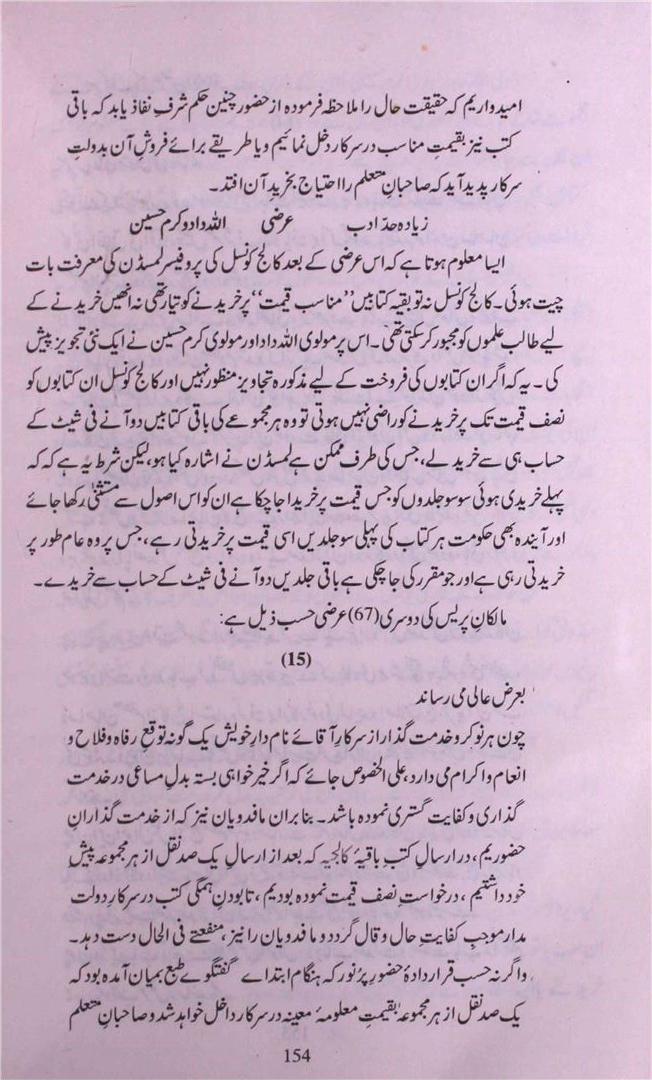 امیدواریم کہ حقیقت حال را ملاحظہ فرمودہ از حضور چنین حکم شرفِ نفاذ یابد کہ باقی
کتب نیز بقیمتِ مناسب در سرکار دخل نمائیم و یا طریقے برائے فروش آن بدولتِ
سرکار پدید آید کہ صاحبانِ متعلم را احتیاج بخرید آن افتد۔
زیادہ حدّ ادب عرضی اللہ داد و کرم حسین
ایسا معلوم ہوتا ہے کہ اس عرضی کے بعد کالج کونسل کی پروفیسر لمسڈن کی معرفت بات
چیت ہوئی۔ کالج کونسل نہ تو بقیہ کتابیں ”مناسب قیمت“ پر خریدنے کو تیار تھی نہ انھیں خریدنے کے
لیے طالب علموں کو مجبور کرسکتی تھی۔ اس پر مولوی اللہ داد اور مولوی کرم حسین نے ایک نئی تجویز پیش
کی۔ یہ کہ اگر ان کتابوں کی فروخت کے لیے مذکورہ تجاویز منظور نہیں اور کالج کونسل ان کتابوں کو
نصف قیمت تک پر خریدنے کو راضی نہیں ہوتی تو وہ ہر مجموعے کی باقی کتابیں دو آنے فی شیٹ کے
حساب ہی سے خرید لے، جس کی طرف ممکن ہے لمسڈن نے اشارہ کیا ہو، لیکن شرط یہ ہے کہ کہ
پہلے خریدی ہوئی سو سو جلدوں کو جس قیمت پر خریدا جاچکا ہے ان کو اس اصول سے مستثنیٰ رکھا جائے
اور آیندہ بھی حکومت ہر کتاب کی پہلی سو جلدیں اسی قیمت پر خریدتی رہے، جس پر وہ عام طور پر
خریدتی رہی ہے اور جو مقرر کی جاچکی ہے باقی جلدیں دو آنے فی شیٹ کے حساب سے خریدے۔
مالکان پریس کی دوسری (67) عرضی حسب ذیل ہے:
(15)
بعرض عالی می رساند
چون ہر نوکر و خدمت گذار از سرکارِ آقائے نام دارِ خویش یک گونہ توقعِ رفاہ و فلاح و
انعام و اکرام می دارد، علی الخصوص جائے کہ اگر خیر خواہی بستہ بدلِ مساعی در خدمت
گذاری و کفایت گستری نمودہ باشد۔ بنابران ما فدویان نیز کہ از خدمت گذارانِ
حضوریم، در ارسالِ کتب باقیۂ کالجیہ کہ بعد از ارسالِ یک صد نقل از ہر مجموعہ پیشِ
خود داشتیم، درخواستِ نصف قیمت نمودہ بودیم، تا بودنِ ہمگی کتب در سرکارِ دولت
مدار موجبِ کفایتِ حال و قال گردد و ما فدویان را نیز، منفعتے فی الحال دست دہد۔
واگر نہ حسب قرار دادۂ حضورِ پر نور کہ ہنگام ابتداے گفتگوے طبع بمیان آمدہ بود کہ
یک صد نقل از ہر مجموعہ بقیمتِ معلومہ معینہ در سرکار داخل خواہد شد و صاحبانِ متعلم
154